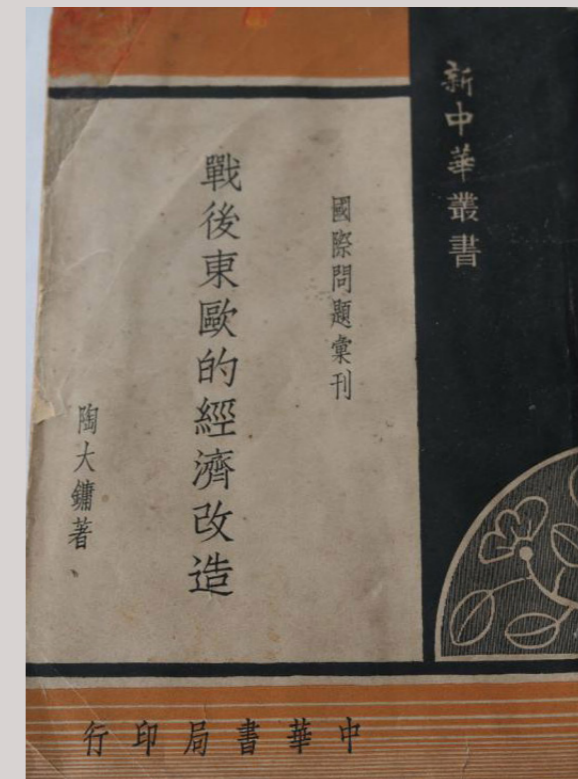 新中華叢書
國際問題彙刊
戰後東歐的經濟改造
陶大鏞著
中華書局印行